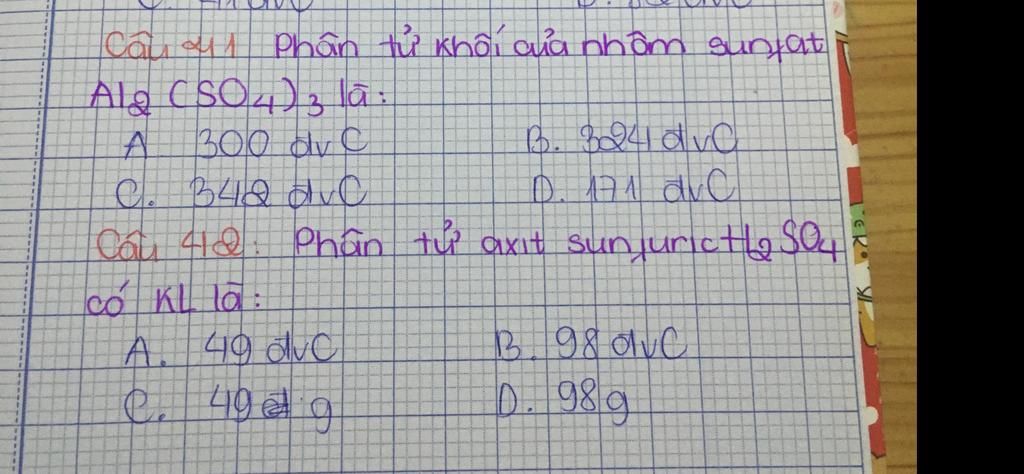 Câu 41 Phân tử khối của nhôm sunfat
Al2(SO4)3 là:
A 300 đvC B. 324 đvC
C. 342 đvC D. 171 đvC
Câu 42: Phân tử axit sunfuric H2SO4
có KL là:
A. 49 đvC B. 98 đvC
C. 49 g D. 98g